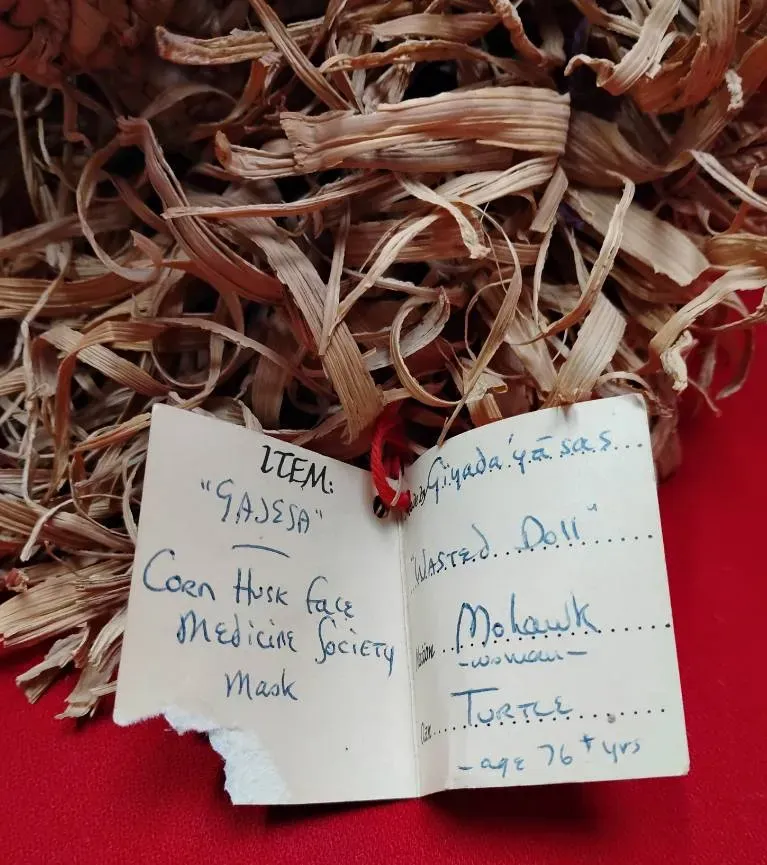 ITEM:
"GAJESA"
Corn Husk Face
Medicine Society
Mask
Giyada'yāsas...
"Wasted Doll"
Nation Mohawk
-woman-
Clan TURTLE
-age 76+ yrs